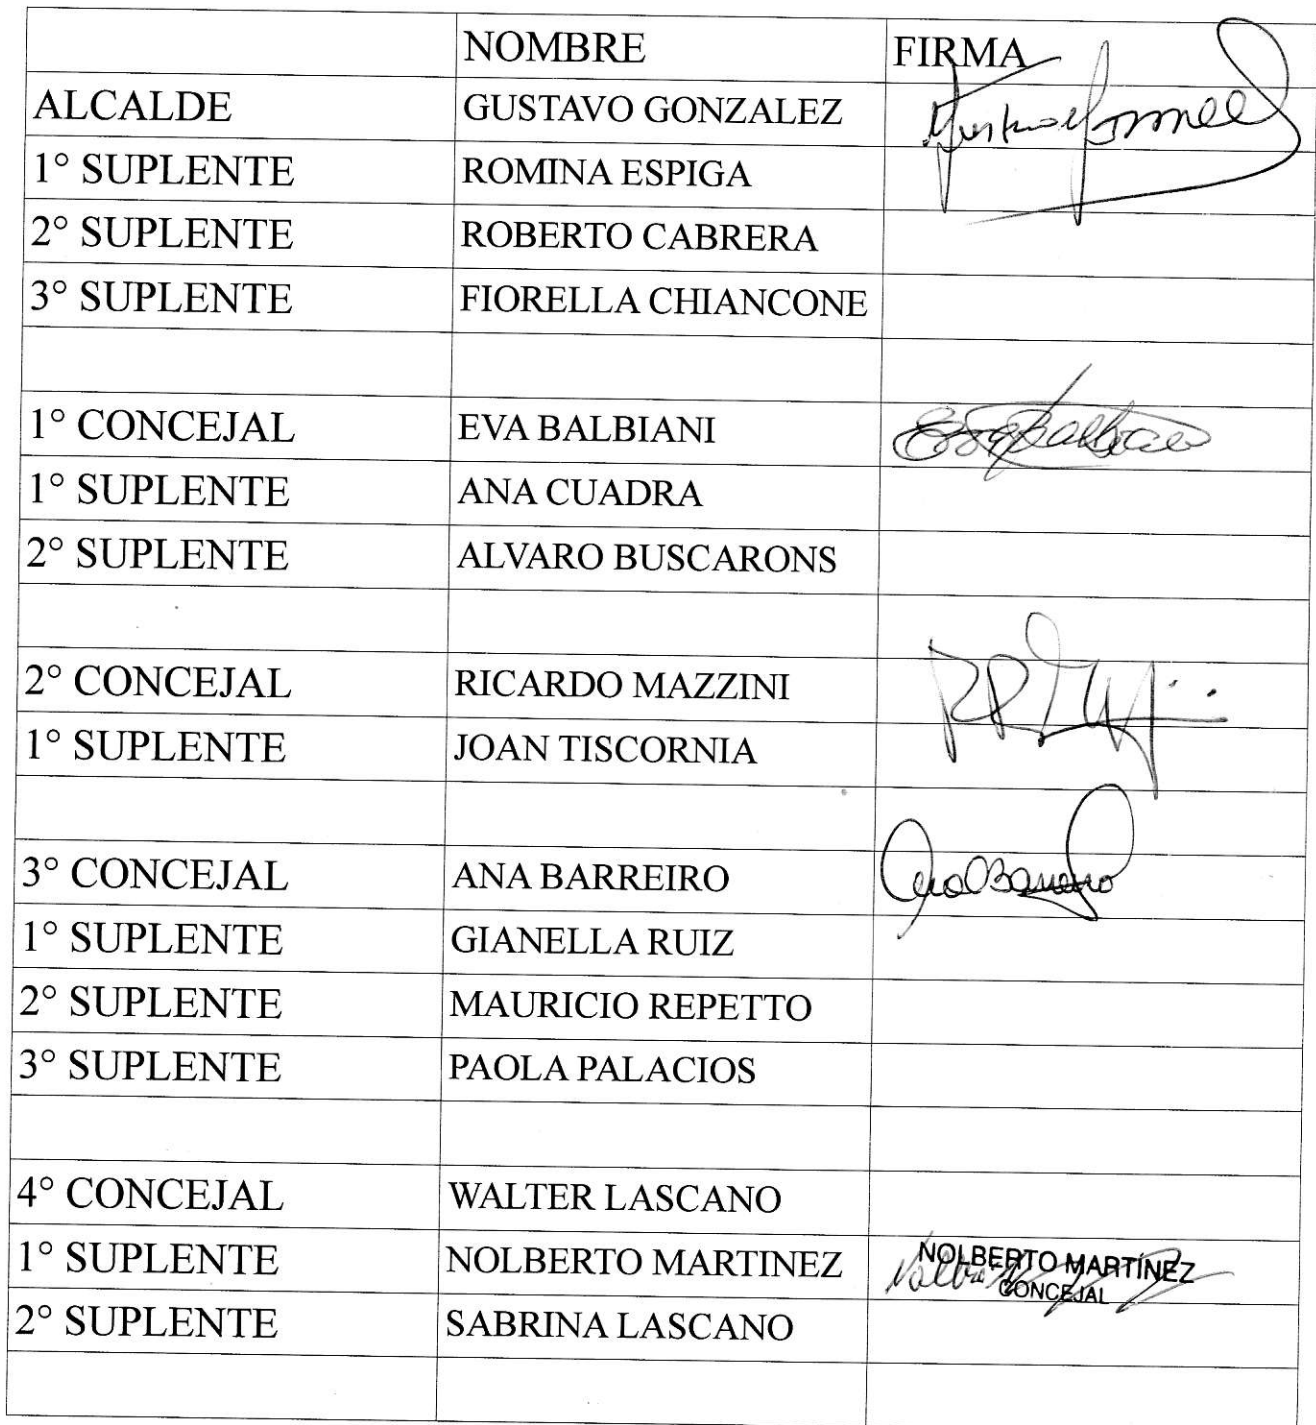 NOMBRE FIRMA
ALCALDE GUSTAVO GONZALEZ
1° SUPLENTE ROMINA ESPIGA
2° SUPLENTE ROBERTO CABRERA
3° SUPLENTE FIORELLA CHIANCONE
1° CONCEJAL EVA BALBIANI Eva Balbiani
1° SUPLENTE ANA CUADRA
2° SUPLENTE ALVARO BUSCARONS
2° CONCEJAL RICARDO MAZZINI
1° SUPLENTE JOAN TISCORNIA
3° CONCEJAL ANA BARREIRO Ana Barreiro
1° SUPLENTE GIANELLA RUIZ
2° SUPLENTE MAURICIO REPETTO
3° SUPLENTE PAOLA PALACIOS
4° CONCEJAL WALTER LASCANO
1° SUPLENTE NOLBERTO MARTINEZ NOLBERTO MARTÍNEZ
CONCEJAL
2° SUPLENTE SABRINA LASCANO